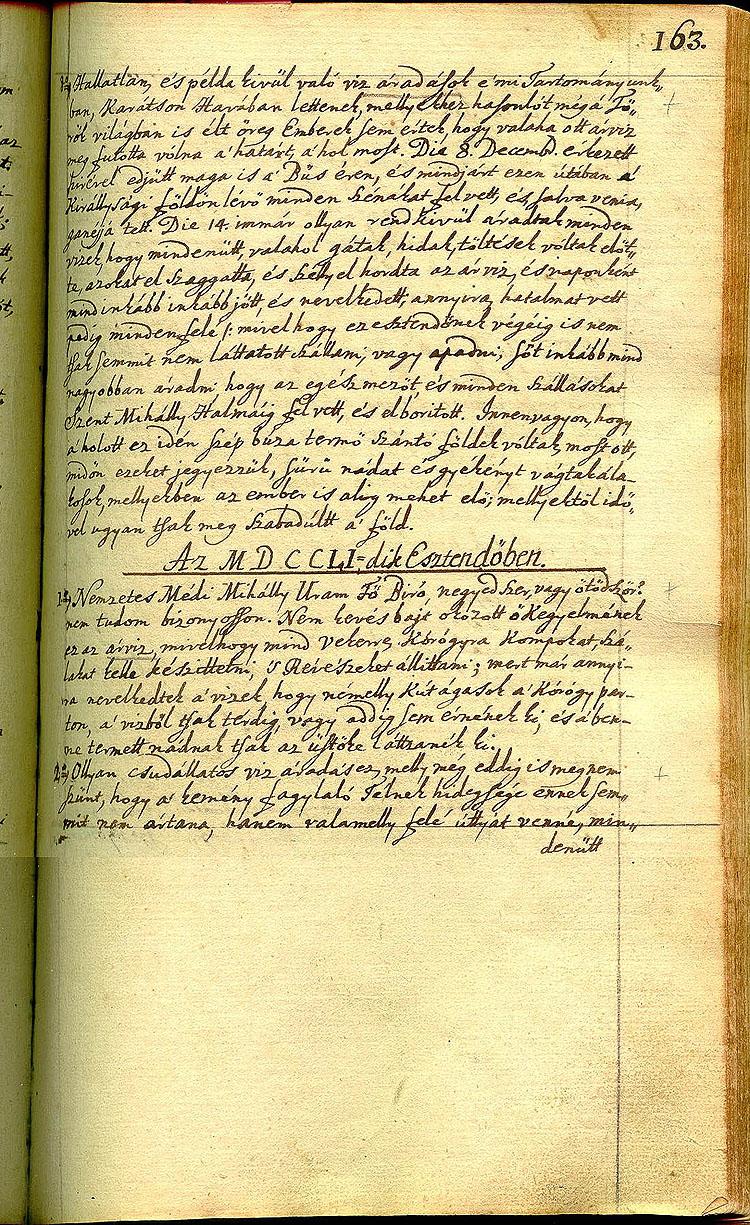 163.
Hallatlan, és példa kivül való viz áradások e' mi Tartományunk„
ban, Karátson Havában lettenek, mellyekhez hasonlót még a' Tö„
rök világban is élt öreg Emberek sem értek, hogy valaha ott arviz
meg futotta vólna a' határt, a' hol most. Dia 8. Decembr. érkezett
hirével edjütt maga is a' Büs éren, és mindjárt ezen útában a'
Királlysági földön lévő minden Szénákat fel vett, és, salva venia,
ganéjjá tett. Die 14. immár ollyan rendkivül áradtak minden
vizek, hogy mindenütt, valahol gátak, hidak, töltések vóltak előt„
te, azokat el szaggatta, és széllyel hordta az árviz, és naponként
mind inkább inkább jött, és nevelkedett, annyira hatalmat vett
pedig minden felé /: mivel hogy ez esztendőnek végéig is nem
tsak semmit nem láttatott szállani, vagy apadni, sőt inkább mind
nagyobban aradni hogy az egész mezőt, és minden Szállásokat
Szent Mihálly Halmáig fel vett, és el boritott. Innen vagyon, hogy
a' holott ez iden szép búza termő szántó földek vóltak, most ott,
midőn ezeket jegyezzük, sürü nádat és gyékényt vagtak a' la„
kosok, mellyekben az ember is alig mehet elő; mellyektől idő„
vel ugyan tsak meg szabadúltt a' föld.
Az MDCCLI=dik Esztendőben.
1ő) Nemzetes Médi Mihálly Uram Fő Biró, negyedszer, vagy ötödször?
nem tudom bizonyosson. Nem kevés bajt okozott ő Kegyelmének
ez az árviz, mivelhogy mind Vekerre, Kórógyra Kompokat, Szá„
lakat kelle készittetni, 's Révészeket állittani; mert már annyi„
ra nevelkedtek a' vizek, hogy némelly Kút ágasok a' Kórógy par„
ton, a' vizből tsak térdig, vagy addig sem érnének ki, és a' ben„
ne termett nádnak tsak az üstöke látzanék ki.
2ő) Ollyan csudállatos viz áradás ez, melly még eddig is meg nem
szünt, hogy a' kemény fagylaló Télnek hidegsége ennek sem„
mit nem ártana, hanem valamelly felé úttyát venné, min„
denütt